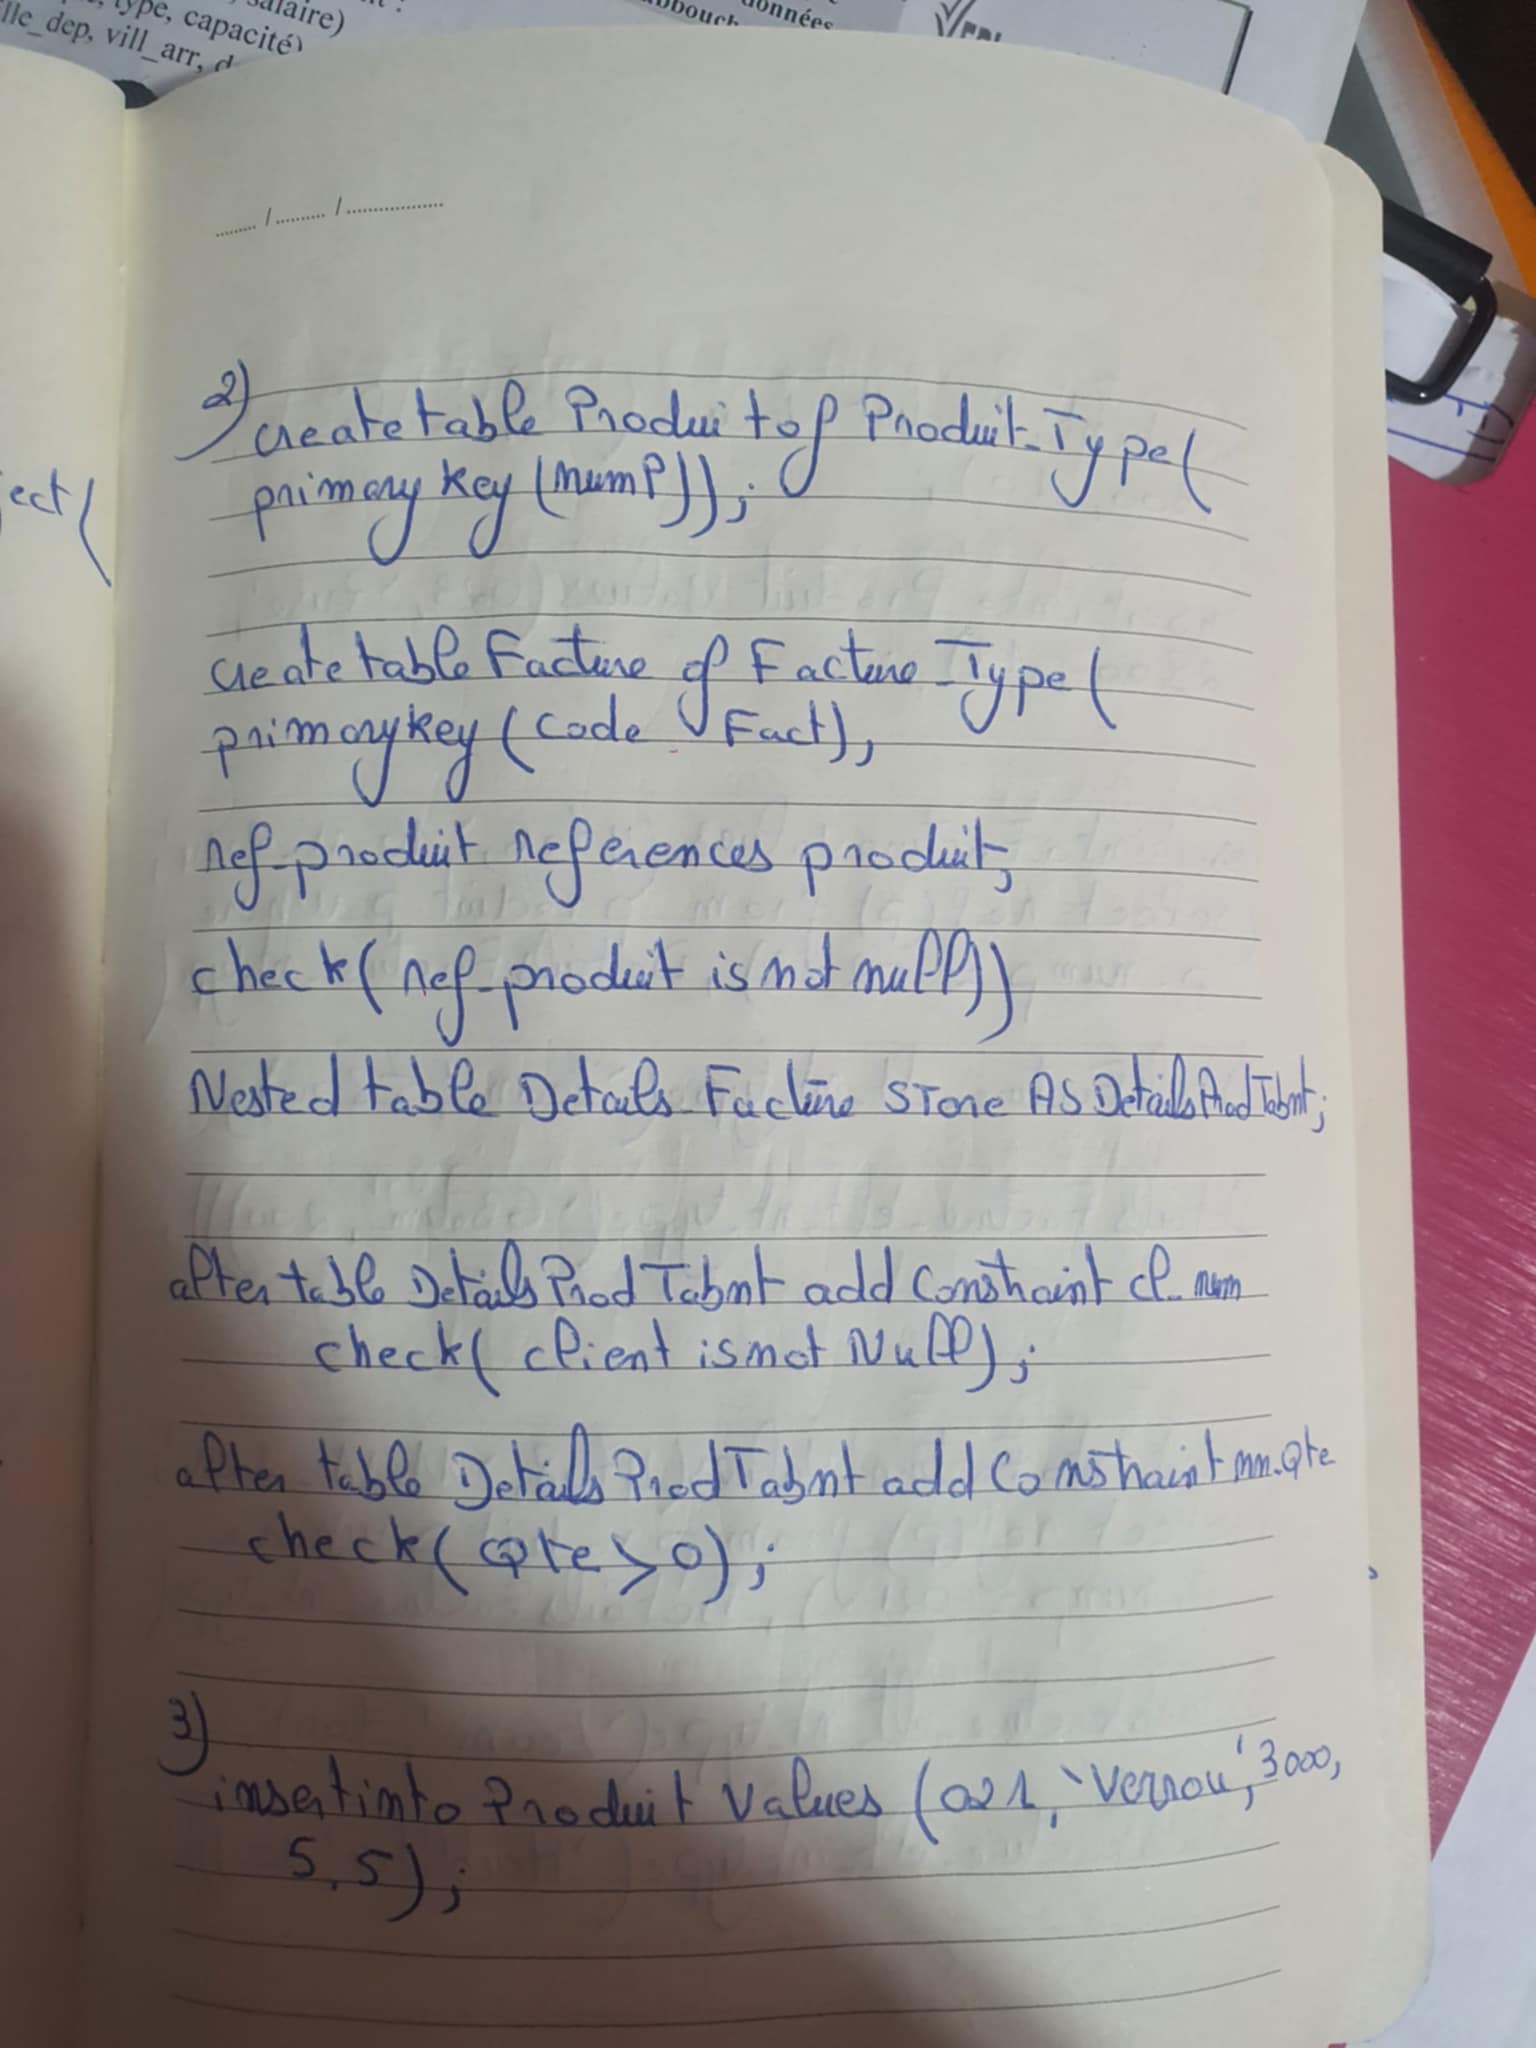 salaire)
type, capacité)
lle_dep, vill_arr, d
données
ject(
2)
create table Produit of Produit_Type(
primary key (numP));
create table Facture of Facture_Type(
primary key (code Fact),
ref_produit references produit,
check( ref_produit is not null))
Nested table Details_Facture STore AS DetailsProdTabnt;
alter table DetailsProdTabnt add constraint cl_num
check( client is not Null);
alter table DetailsProdTabnt add constraint nn_Qte
check( Qte > 0);
3)
insert into Produit values (021, 'Verrou', 3000,
5,5);